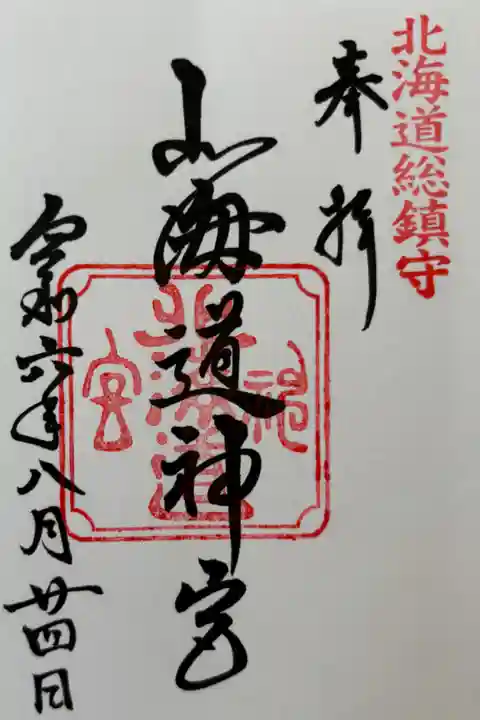 北海道総鎮守
奉拝
北海道神宮
北海道神宮
令和六年八月廿四日